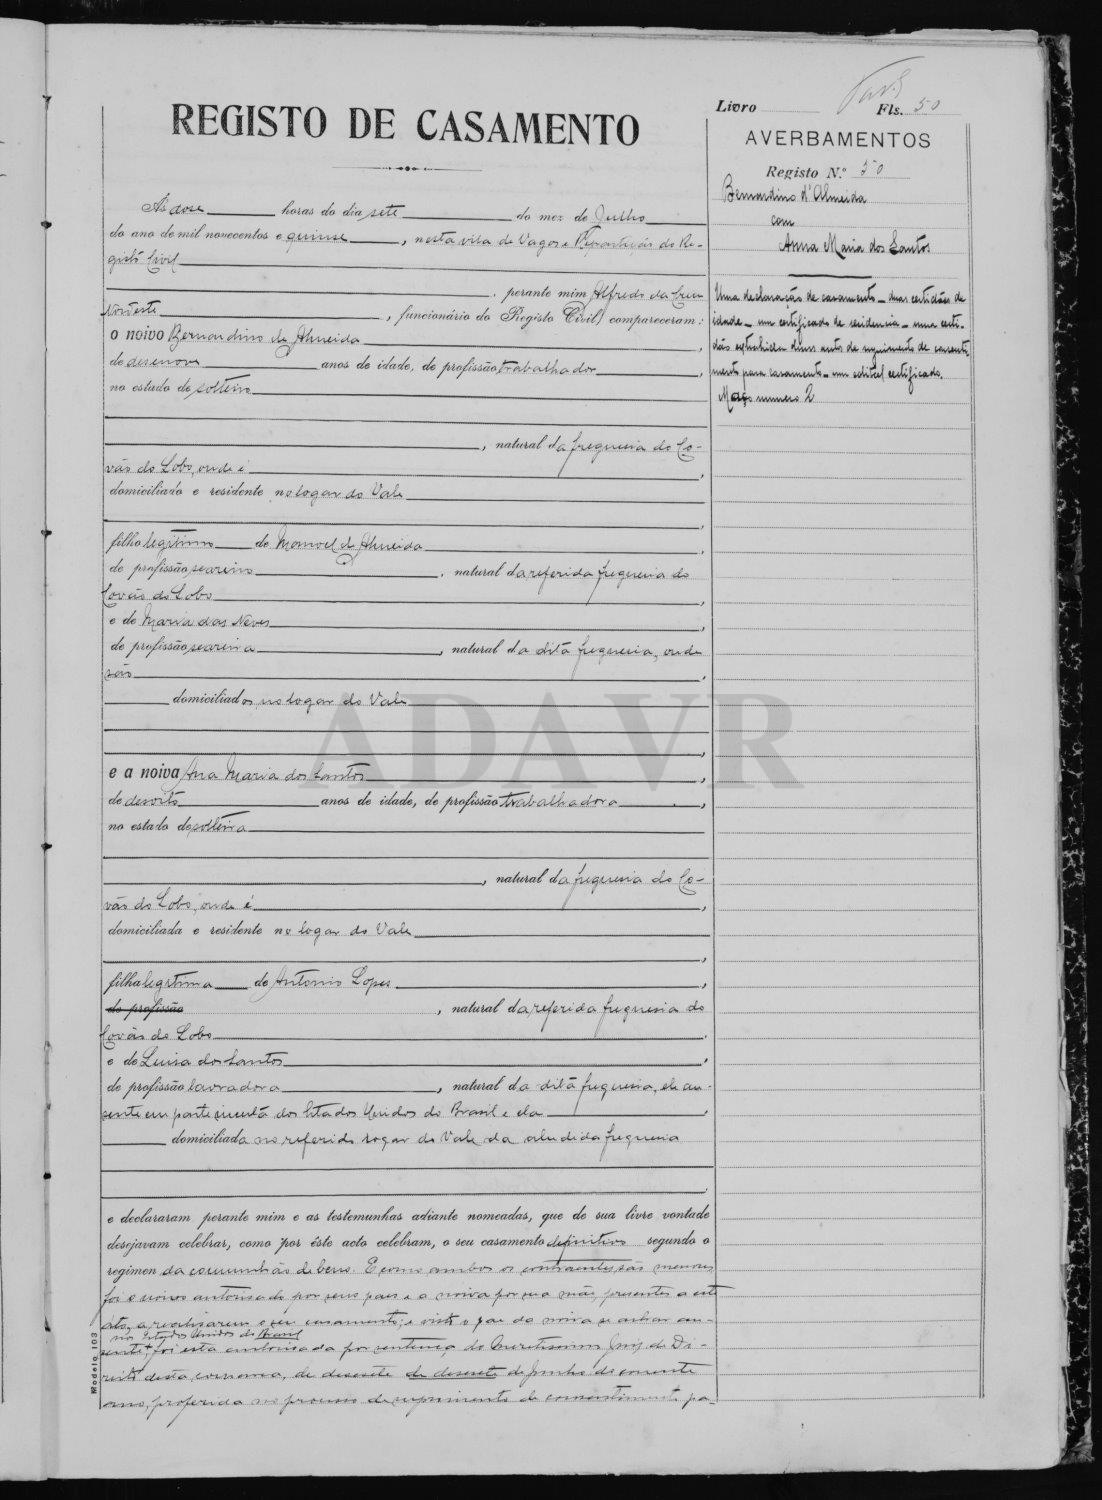 Livro Fls. 50
REGISTO DE CASAMENTO
AVERBAMENTOS
Registo N.º 50
Bernardino d'Almeida
com
Anna Maria dos Santos
Uma declaração de casamento - duas certidões de
idade - um certificado de residencia - uma certi-
dão extrahida duns autos de suprimento de consenti-
mento para casamento - um edital certificado.
Maço numero 2
Ás dose horas do dia sete do mez de Julho
do ano de mil novecentos e quinse, nesta vila de Vagos e Repartição do Re-
gisto Civil
, perante mim Alfredo da Cruz
Nordeste, funcionário do Registo Civil, compareceram:
o noivo Bernardino de Almeida
de desenove anos de idade, de profissão trabalhador,
no estado de solteiro
, natural da freguesia do Co-
vão do Lobo, onde é,
domiciliado e residente no logar do Vale
,
filho legitimo de Manoel de Almeida,
de profissão seareiro, natural da referida freguesia do
Covão do Lobo,
e de Maria das Neves,
de profissão seareira, natural da dita freguesia, onde
são,
domiciliados no logar do Vale
,
ADAVR
e a noiva Ana Maria dos Santos,
de desoito anos de idade, de profissão trabalhadora,
no estado de solteira
, natural da freguesia do Co-
vão do Lobo, onde é,
domiciliada e residente no logar do Vale
,
filha legitima de Antonio Lopes,
de profissão, natural da referida freguesia do
Covão do Lobo,
e de Luisa dos Santos,
de profissão lavradora, natural da dita freguesia, ele au-
sente em parte incerta dos Estados Unidos do Brasil e ela,
domiciliada no referido logar do Vale da aludida freguesia
e declararam perante mim e as testemunhas adiante nomeadas, que de sua livre vontade
desejavam celebrar, como por êste acto celebram, o seu casamento definitivo segundo o
regimen da comunhão de bens. E como ambos os contraentes são menores
foi o noivo autorisado por seus paes e a noiva por sua mãe, presentes a este
áto, a realisarem o seu casamento; e visto o pae da noiva se achar au-
nos Estados Unidos do Brasil
sente, foi esta autorisada por sentença do Meretissimo Juiz de Di-
reito desta comarca, de desesete de desesete de Junho do corrente
ano, proferida no processo de suprimento de consentimento pa-
Modelo 103